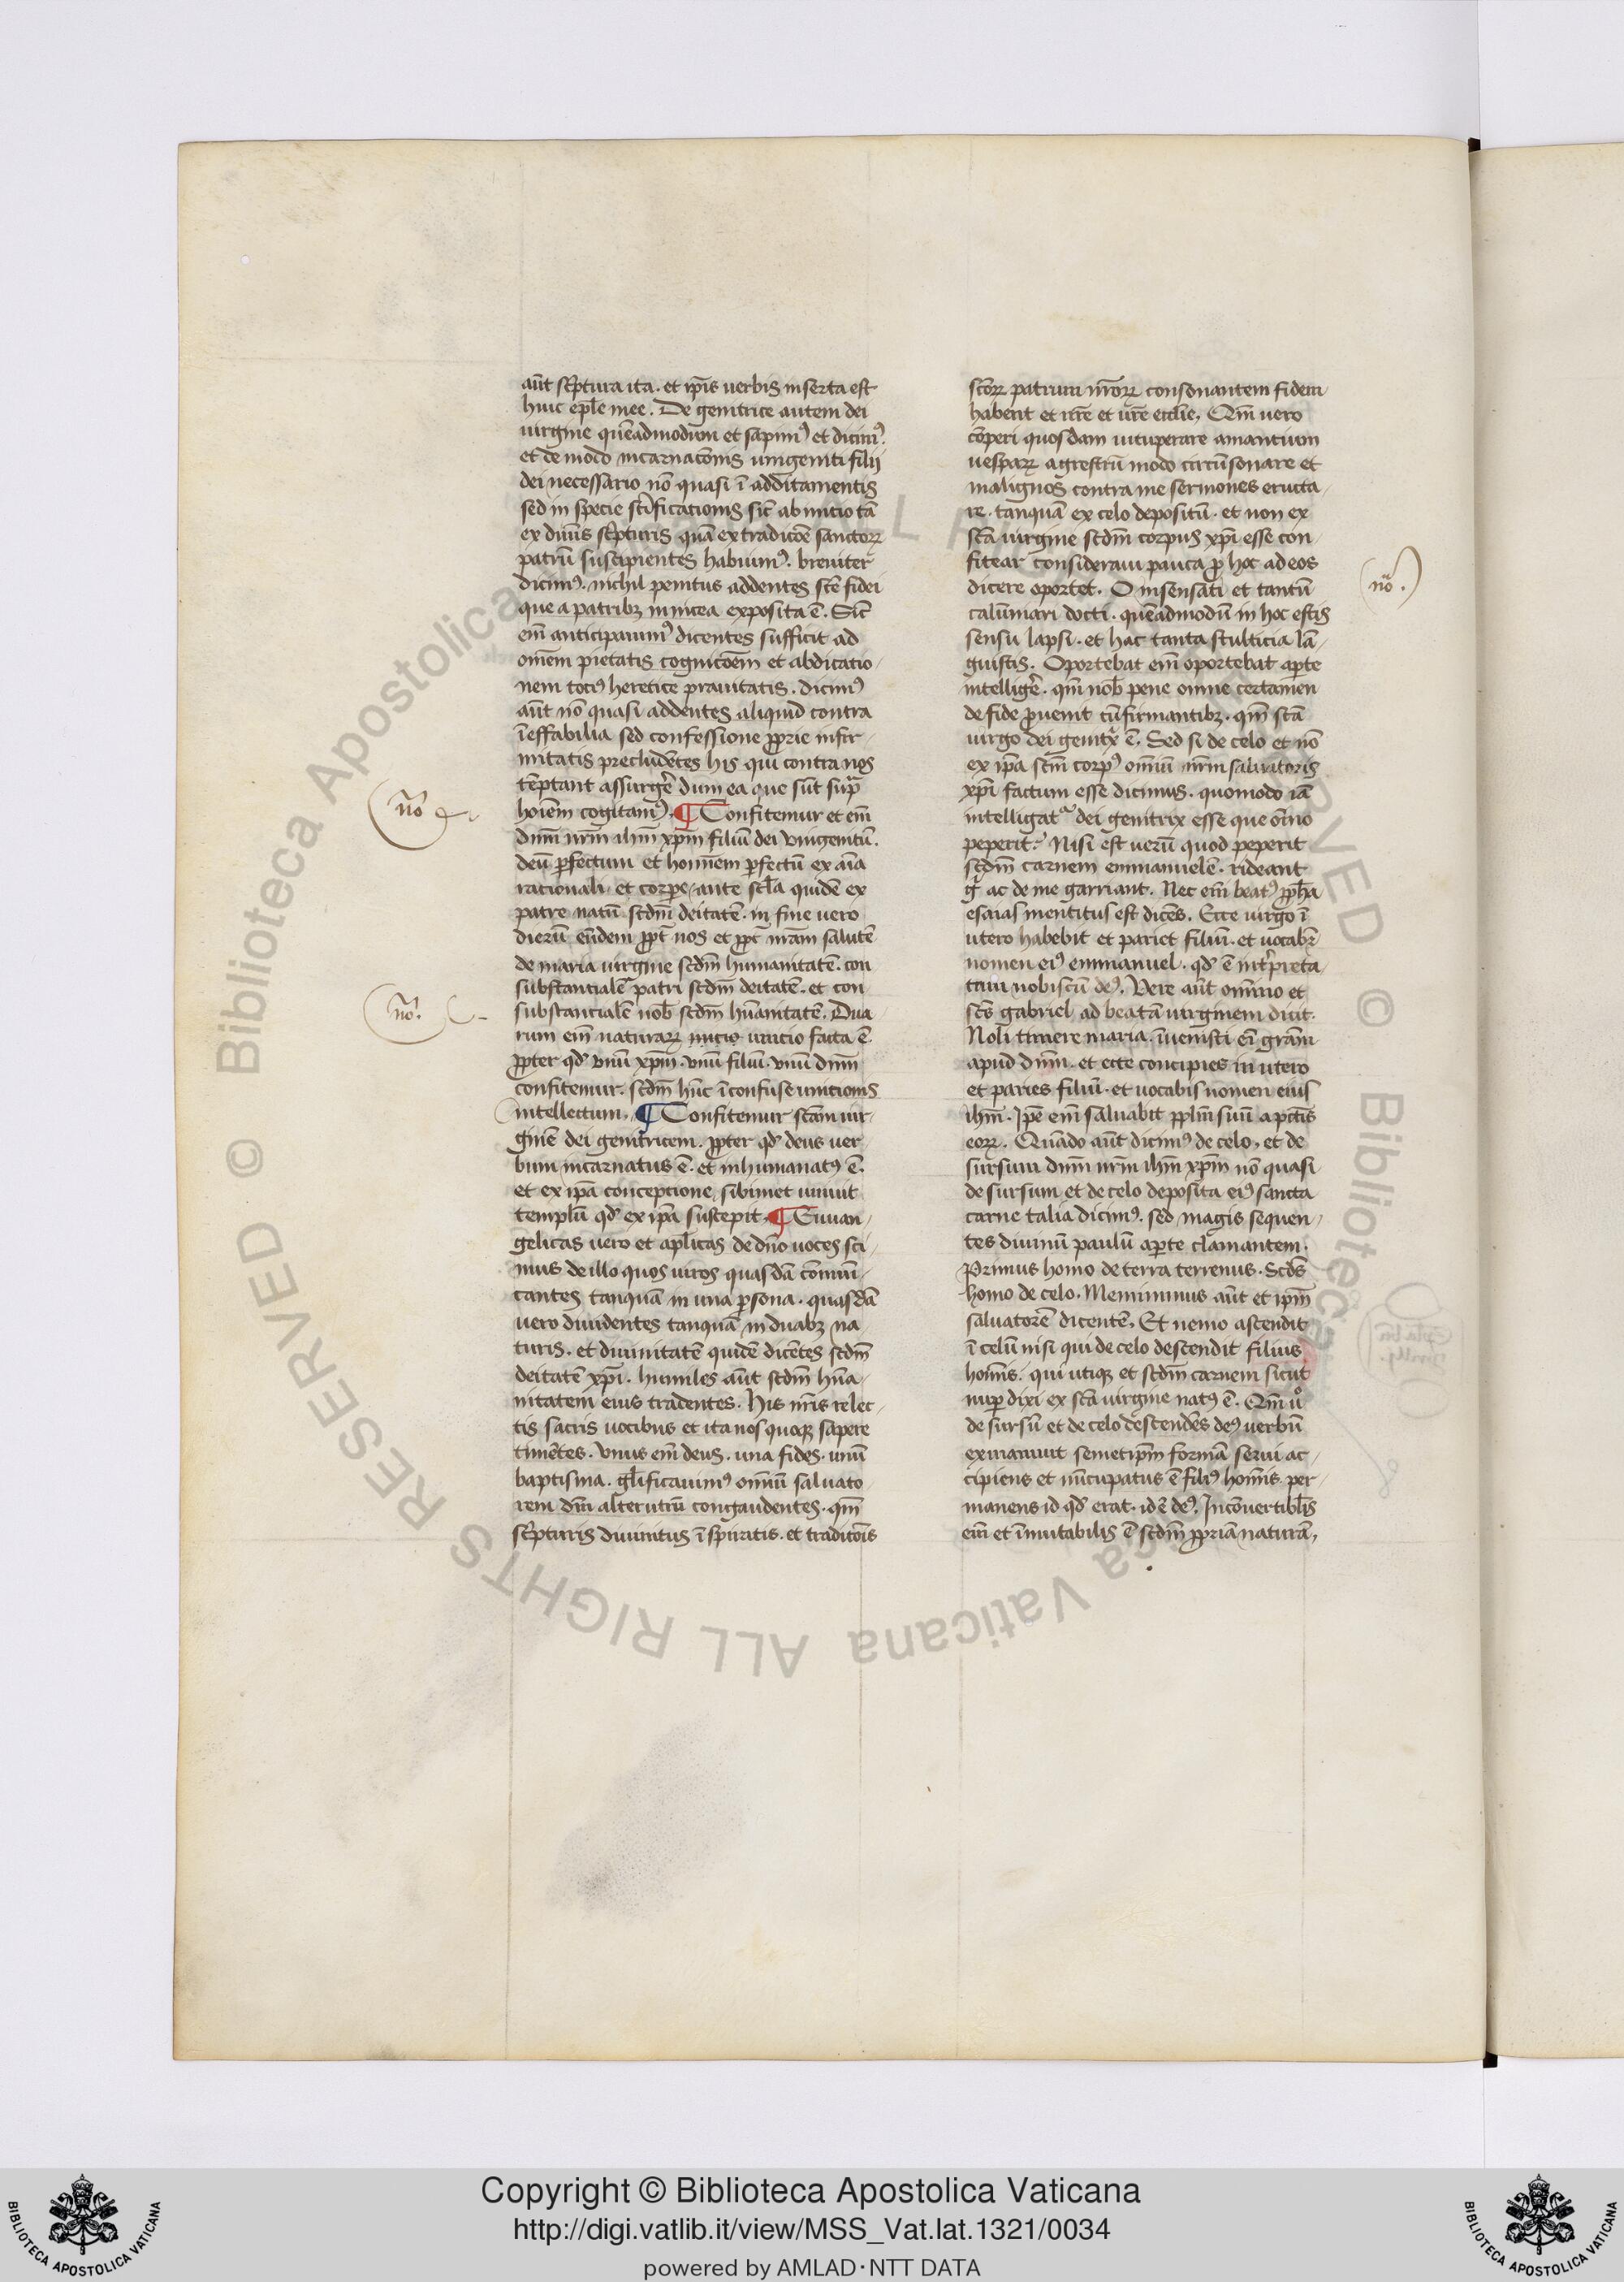 aūt sc̄ptura ita. et ip̄is uerbis inserta est
huic ep̄le mee. De genitrice autem dei
uirgine quēadmodum et sapimꝰ et dicimꝰ.
et de modo incarnac̄onis unigeniti filij
dei necessario nō quasi ī additamentis
sed in specie sc̄ificationis sic̄ ab inicio tā
ex diuīs sc̄pturis quā ex tradic̄oe sanctoꝝ
patrū suscipientes habuimꝰ. breuiter
dicimꝰ. nichil penitus addentes sc̄e fidei
que a patribꝫ in nicea exposita ē. Sic̄
em̄ anticipauimꝰ dicentes sufficit ad
om̄em pietatis cognic̄oem et abdicatio-
nem tociꝰ heretice prauitatis. dicimꝰ
aūt nō quasi addentes aliquid contra
īeffabilia sed confessione ꝓprie infir-
mitatis precludētes his qui contra nos
tēptant assurgẽ dum ea que sūt supᷓ
hoīem cogitamꝰ. ¶ Confitemur et em̄
dn̄m nr̄m ih̄m xp̄m filiū dei vnigenitū.
deū ꝑfectum et hominem ꝑfectū ex aīa
racionali. et corpe. ante sc̄la quidē ex
patre natū scd̄m deitatē. in fine uero
dierū eūdem ꝓpt̄ nos et ꝓpt̄ nr̄am salutē
de maria uirgine scd̄m humanitatē. con
substancialē patri scd̄m deitatē. et con-
substancialē nob̄ scd̄m hūanitatē. Dua
rum em̄ naturaꝝ unicio facta ē.
ꝓpter qd̓ vnū xp̄m. vnū filiū. vnū dn̄m
confitemur. scd̄m hūc īconfuse unicionis
intellectum. ¶ Confitemur sc̄am uir-
ginē dei genitricem. ꝓpter qd̓ deus uer-
bum incarnatus ē. et inhumanatꝰ ē.
et ex ip̄a conceptione sibimet uniuit
templū qd̓ ex ip̄a suscepit. ¶ Euuan-
gelicas uero et ap̄licas de dn̄o uoces sci-
mus de illo quos uiros quasdā cōmūi-
cantes tanquā in una ꝑsona. quasdā
uero diuidentes tanquā in duabꝫ na
turis. et diuinitatē quidē dicētes scd̄m
deitatē xp̄i. humiles aūt scd̄m hūa-
nitatem eius tradentes. His nr̄is relec-
tis sacris uocibus et ita nos quoqꝫ sapere
timētes. Vnus em̄ deus. una fides. unū
baptisma. gl̄ificauimꝰ omniū saluato-
rem dn̄m alterutrū congaudentes. qm̄
sc̄pturis diuinitus īspiratis. et tradic̄ois
sc̄oꝝ patrum nr̄oꝝ consonantem fidem
habent et nr̄e et ur̄e eccl̄ie. Qm̄ uero
cōperi quosdam uituperare amantium
uespaꝝ agrestiū modo circūsonare et
malignos contra me sermones eructa-
re. tanquā ex celo depositū. et non ex
sc̄a uirgine scd̄m corpus xp̄i esse con-
fitear consideraui pauca ꝓ hoc ad eos
dicere oportet. O insensati et tantū
calūniari docti. quēadmodū in hoc estis
sensu lapsi. et hac tanta stulticia lā-
guistis. Oportebat em̄ oportebat aꝑte
intelligẽ. qm̄ nob̄ pene omne certamen
de fide ꝓuenit cūfirmantibꝫ. qm̄ sc̄a
uirgo dei genitx̄ ē. Sed si de celo et nō
ex ip̄a sc̄m corpꝰ omniū nr̄m saluatoris
xp̄i factum esse dicimus. quomodo iā
intelligatᷓ dei genitrix esse que om̄īo
peperit? Nisi est uerū quod peperit
scd̄m carnem emmanuelē. rideant
g̊ ac de me garriant. Nec em̄ beatꝰ ꝓph̄a
esaias mentitus est dicēs. Ecce uirgo ī
utero habebit et pariet filiū. et uocabit̄
nomen eiꝰ emmanuel. qd̓ ē int̄preta-
tum nobiscū deꝰ. Vere aūt omnīo et
sc̄s gabriel ad beatā uirginem dixit.
Noli timere maria. īuenisti em̄ grām
apud dn̄m. et ecce concipies in utero
et paries filiū. et uocabis nomen eius
ih̄m. Ip̄e em̄ saluabit ppl̄m suū a pc̄tis
eoꝝ. Quādo aūt dicimꝰ de celo. et de
sursum dn̄m nr̄m ih̄m xp̄m nō quasi
de sursum et de celo deposita eiꝰ sancta
carne talia dicimꝰ. sed magis sequen-
tes diuinū paulū aꝑte clamantem.
Primus homo de terra terrenus. Scd̄s
homo de celo. Meminimus aūt et ip̄m
saluatorē dicentē. Et nemo ascendit
ī celū nisi qui de celo descendit filius
homīs. qui utiqꝫ et scd̄m carnem sicut
nuꝑ dixi ex sc̄a uirgine natꝰ ē. Qm̄ u̾o
de sursū et de celo descendēs deꝰ uerbū
exinaniuit semetip̄m formā serui ac-
cipiens et nūcupatus ē filiꝰ homīs. per-
manens id qd̓ erat. id ē deꝰ. Incōuertibil̄is
em̄ et īmutabilis ē scd̄m ꝓpriā naturā.
nō
nō.
nō.
Copyright © Biblioteca Apostolica Vaticana
http://digi.vatlib.it/view/MSS_Vat.lat.1321/0034
powered by AMLAD·NTT DATA
BIBLIOTECA APOSTOLICA VATICANA
BIBLIOTECA APOSTOLICA VATICANA
© Biblioteca Apostolica Vaticana ALL RIGHTS RESERVED